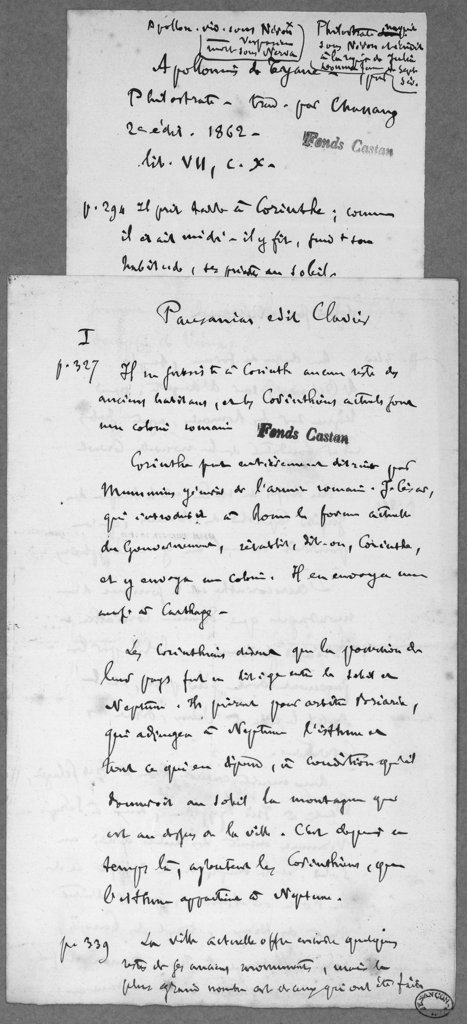 Apollon. viv. sous Néron
Vespasien
mort sous Nerva
Philostrate naquit
sous Néron et écrivit
à la
Sept.
Sév.
Apollonius de Tyane par
Philostrate - trad. par Chassang
2e édit. 1862 -
lib. VII, c. X -
Fonds Castan
p. 294 Il prit terre à Corinthe ; comme
il était midi - il y fit, suivt son
habitude, ses prières au Soleil.
Pausanias edit Clavier
I
p. 327 Il ne subsiste à Corinthe aucun reste des
anciens habitans, et les Corinthiens actuels sont
une colonie romaine
Fonds Castan
Corinthe fut entièrement détruite par
Mummius général de l'armée romaine. J. César,
qui introduisit à Rome la forme actuelle
du Gouvernement, rétablit, dit-on, Corinthe,
et y envoya une colonie. Il en envoya une
aussi à Carthage -
Les Corinthiens disent que la possession de
leur pays fut un litige entre le Soleil et
Neptune. Ils prirent pour arbitre Briarée,
qui adjugea à Neptune l'isthme et
tout ce qui en dépend, à condition qu'il
donneroit au Soleil la montagne qui
est au dessus de la ville. C'est depuis ce
temps là, ajoutent les Corinthiens, que
l'isthme appartient à Neptune.
p. 339 La ville actuelle offre encore quelques
restes de ses anciens monuments, mais le
plus grand nombre est de ceux qui ont été faits